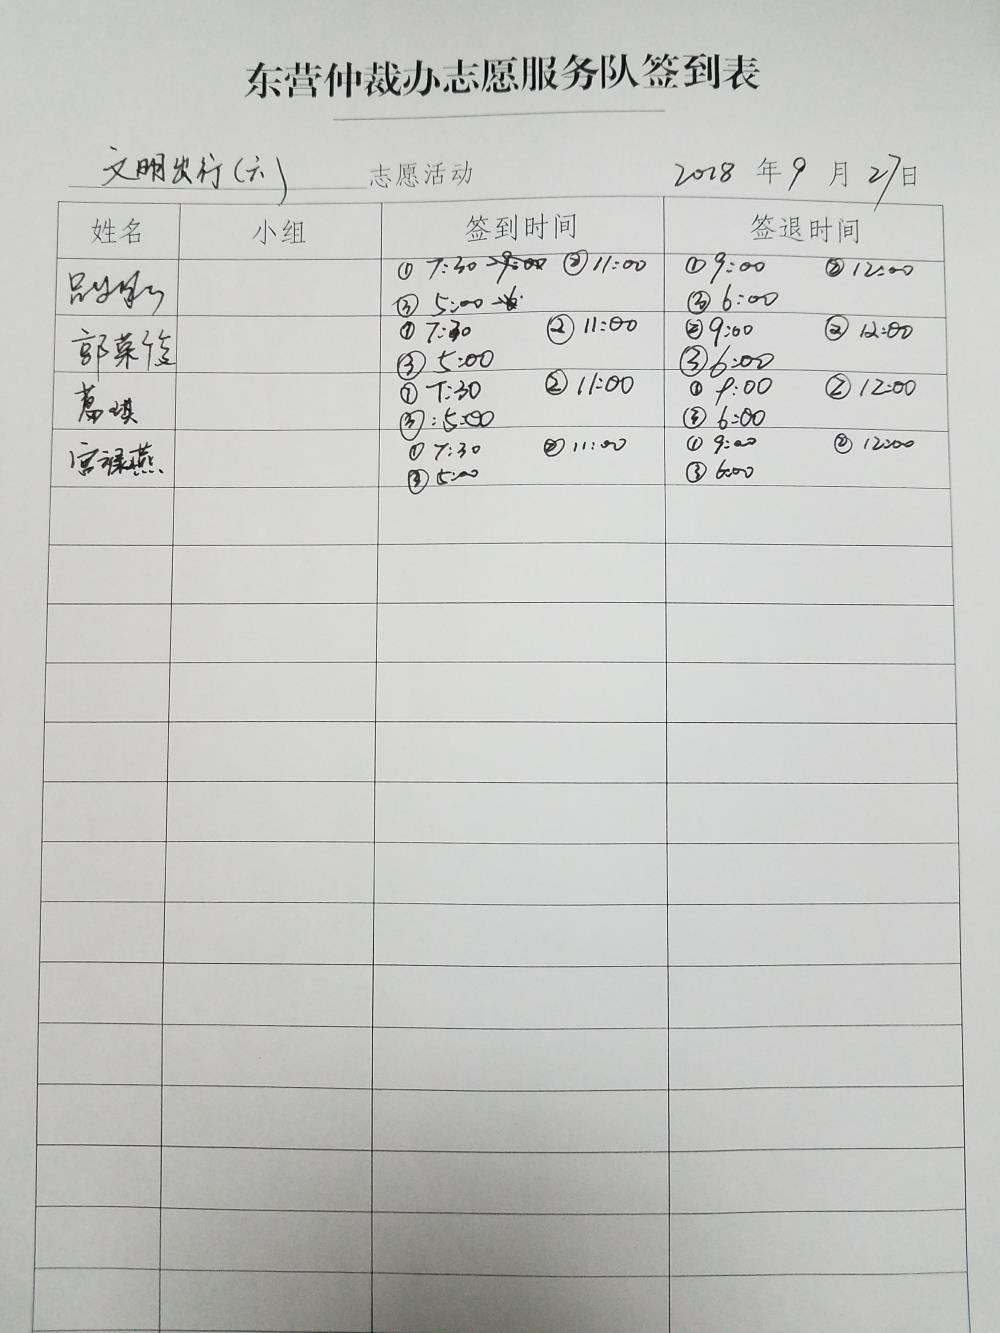 东营仲裁办志愿服务队签到表
文明出行(六) 志愿活动 2018 年 9 月 27 日
姓名 小组 签到时间 签退时间
① 7:30 ② 11:00 ① 9:00 ② 12:00
③ 5:00 ③ 6:00
郭荣俊 ① 7:30 ② 11:00 ② 9:00 ② 12:00
③ 5:00 ③ 6:00
葛琪 ① 7:30 ② 11:00 ① 9:00 ② 12:00
③ :5:00 ③ 6:00
宫禄燕 ① 7:30 ② 11:00 ① 9:00 ② 12:00
③ 5:00 ③ 6:00